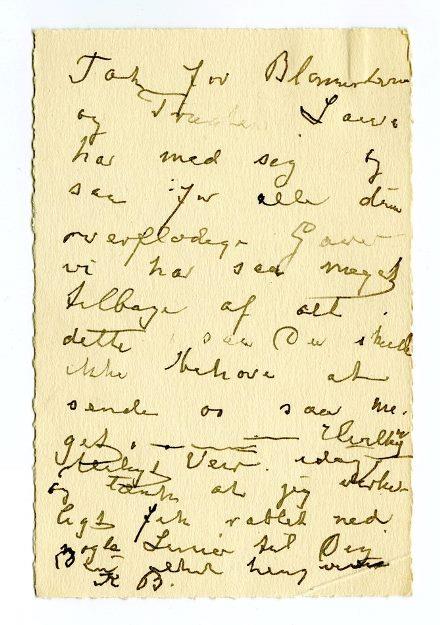 Tak for Blomsterne
og Laura
har med sig og
saa for alle dine
overflødige Gaver
vi har saa meget
tilbage af alt
dette saa Du skulde
ikke behøve at
sende os saa me-
get. —
Veir idag
og tænk at jeg virke-
ligt fik rablet ned
nogle Linier til Dig.
Din
B.